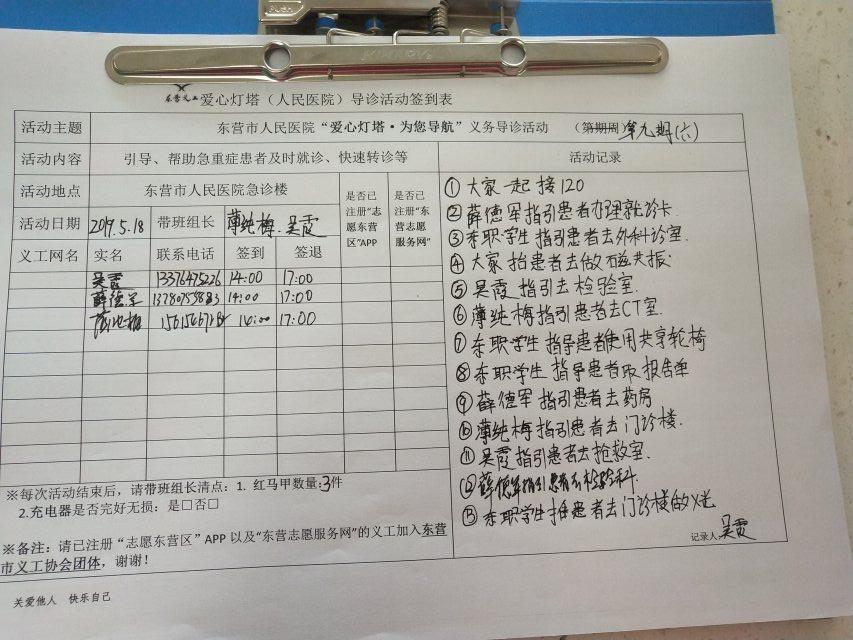 Push
东营义工 爱心灯塔（人民医院）导诊活动签到表
活动主题 东营市人民医院“爱心灯塔·为您导航”义务导诊活动 （第期周 第九期(六)
活动内容 引导、帮助急重症患者及时就诊、快速转诊等 活动记录
活动地点 东营市人民医院急诊楼
是否已注册“志愿东营区”APP
是否已注册“东营志愿服务网”
活动日期 2019.5.18 带班组长 薄纯梅、吴霞
义工网名 实名 联系电话 签到 签退
吴霞 13376475226 14:00 17:00
薛德军 14:00 17:00
薄纯梅 14:00 17:00
※每次活动结束后，请带班组长清点：1. 红马甲数量:3件
2.充电器是否完好无损：是□否□
※备注：请已注册“志愿东营区”APP 以及“东营志愿服务网”的义工加入东营
市义工协会团体，谢谢！
①大家一起接120
②薛德军指引患者办理就诊卡
③东职学生指引患者去外科诊室.
④大家抬患者去做磁共振
⑤吴霞指引去检验室.
⑥薄纯梅指引患者去CT室.
⑦东职学生指导患者使用共享轮椅
⑧东职学生指导患者取报告单
⑨薛德军指引患者去药房
⑩薄纯梅指引患者去门诊楼.
⑪吴霞指引患者去抢救室.
⑫薛德军指引患者去检验科.
⑬东职学生推患者去门诊楼做X光
记录人 吴霞
关爱他人 快乐自己